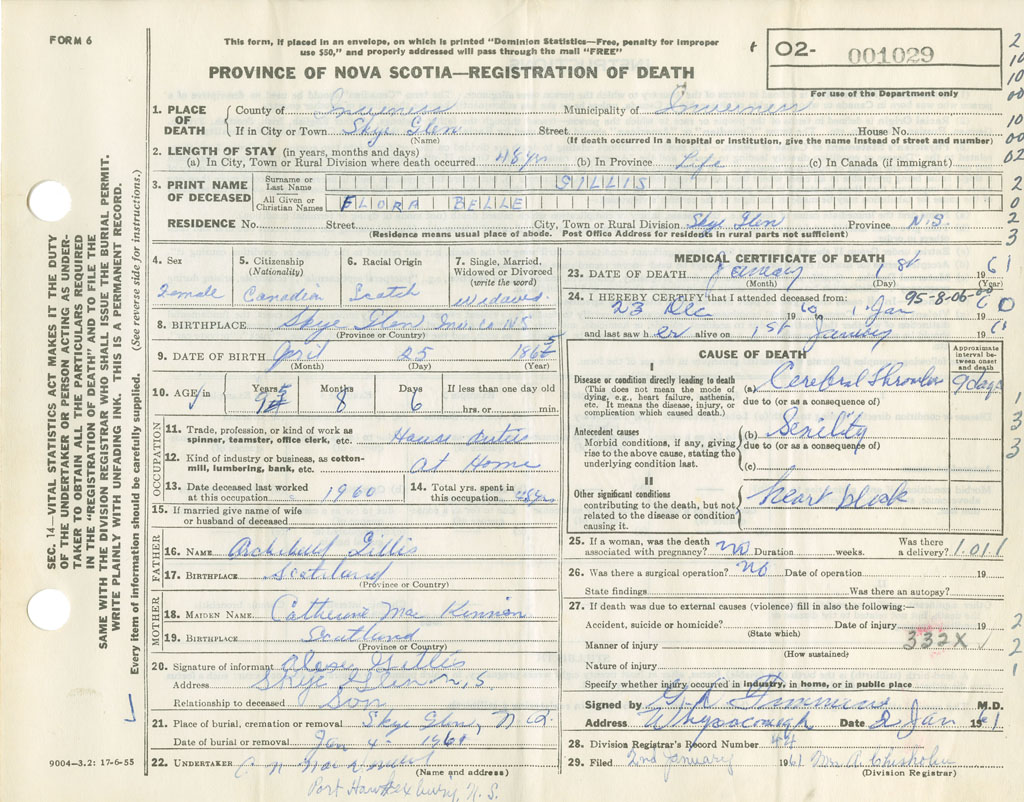 FORM 6
This form, if placed in an envelope, on which is printed "Dominion Statistics—Free, penalty for improper
use $50," and properly addressed will pass through the mail "FREE"
PROVINCE OF NOVA SCOTIA—REGISTRATION OF DEATH
02- 001029
For use of the Department only
1. PLACE OF DEATH
County of Inverness Municipality of Inverness
If in City or Town Skye Glen Street House No.
(Name) (If death occurred in a hospital or institution, give the name instead of street and number)
2. LENGTH OF STAY (in years, months and days)
(a) In City, Town or Rural Division where death occurred 48 yrs (b) In Province Life (c) In Canada (if immigrant)
3. PRINT NAME OF DECEASED
Surname or Last Name GILLIS
All Given or Christian Names FLORA BELLE
RESIDENCE No. Street City, Town or Rural Division Skye Glen Province N.S.
(Residence means usual place of abode. Post Office Address for residents in rural parts not sufficient)
4. Sex Female
5. Citizenship (Nationality) Canadian
6. Racial Origin Scotch
7. Single, Married, Widowed or Divorced (write the word) Widowed
8. BIRTHPLACE Skye Glen Inv. Co NS
(Province or Country)
9. DATE OF BIRTH April 25 186
(Month) (Day) (Year)
10. AGE in Years Months 8 Days 6 If less than one day old
hrs. or min.
OCCUPATION
11. Trade, profession, or kind of work as spinner, teamster, office clerk, etc. House duties
12. Kind of industry or business, as cotton-mill, lumbering, bank, etc. at Home
13. Date deceased last worked at this occupation 1960
14. Total yrs. spent in this occupation 48 yrs
15. If married give name of wife or husband of deceased
FATHER
16. NAME Archibald Gillis
17. BIRTHPLACE Scotland
(Province or Country)
MOTHER
18. MAIDEN NAME Catherine Mac Kinnon
19. BIRTHPLACE Scotland
(Province or Country)
20. Signature of informant Gillis
Address Skye Glen N.S.
Relationship to deceased Son
21. Place of burial, cremation or removal Skye Glen, N.S.
Date of burial or removal Jan 4 - 1961
22. UNDERTAKER
(Name and address)
Port Hawkesbury, N.S.
9004—3.2: 17-6-55
MEDICAL CERTIFICATE OF DEATH
23. DATE OF DEATH January 1st 1961
(Month) (Day) (Year)
24. I HEREBY CERTIFY that I attended deceased from: 95-8-06-
23 Dec 1960 1 Jan
and last saw her alive on 1st January 1961
CAUSE OF DEATH
Approximate interval between onset and death
I
Disease or condition directly leading to death
(This does not mean the mode of dying, e.g., heart failure, asthenia, etc. It means the disease, injury, or complication which caused death.)
(a) Cerebral 9 days
due to (or as a consequence of)
Antecedent causes
Morbid conditions, if any, giving rise to the above cause, stating the underlying condition last.
(b) Senility
due to (or as a consequence of)
(c)
II
Other significant conditions
contributing to the death, but not related to the disease or condition causing it.
heart block
25. If a woman, was the death associated with pregnancy? no Duration weeks. Was there a delivery? 1.01.1
26. Was there a surgical operation? No Date of operation 19
State findings Was there an autopsy?
27. If death was due to external causes (violence) fill in also the following:—
Accident, suicide or homicide? Date of injury 19
(State which)
332X
Manner of injury
(How sustained)
Nature of injury
Specify whether injury occurred in industry, in home, or in public place
Signed by M.D.
Address Whycocomagh Date 2 Jan 1961
28. Division Registrar's Record Number
29. Filed 2nd January 1961 Mrs A. Chisholm
(Division Registrar)
SEC. 14—VITAL STATISTICS ACT MAKES IT THE DUTY
OF THE UNDERTAKER OR PERSON ACTING AS UNDER-
TAKER TO OBTAIN ALL THE PARTICULARS REQUIRED
IN THE "REGISTRATION OF DEATH" AND TO FILE THE
SAME WITH THE DIVISION REGISTRAR WHO SHALL ISSUE THE BURIAL PERMIT.
WRITE PLAINLY WITH UNFADING INK. THIS IS A PERMANENT RECORD.
Every item of information should be carefully supplied. (See reverse side for instructions.)
2
10
10
00
10
00
02
2
0
2
3
1
3
3
2
2
1